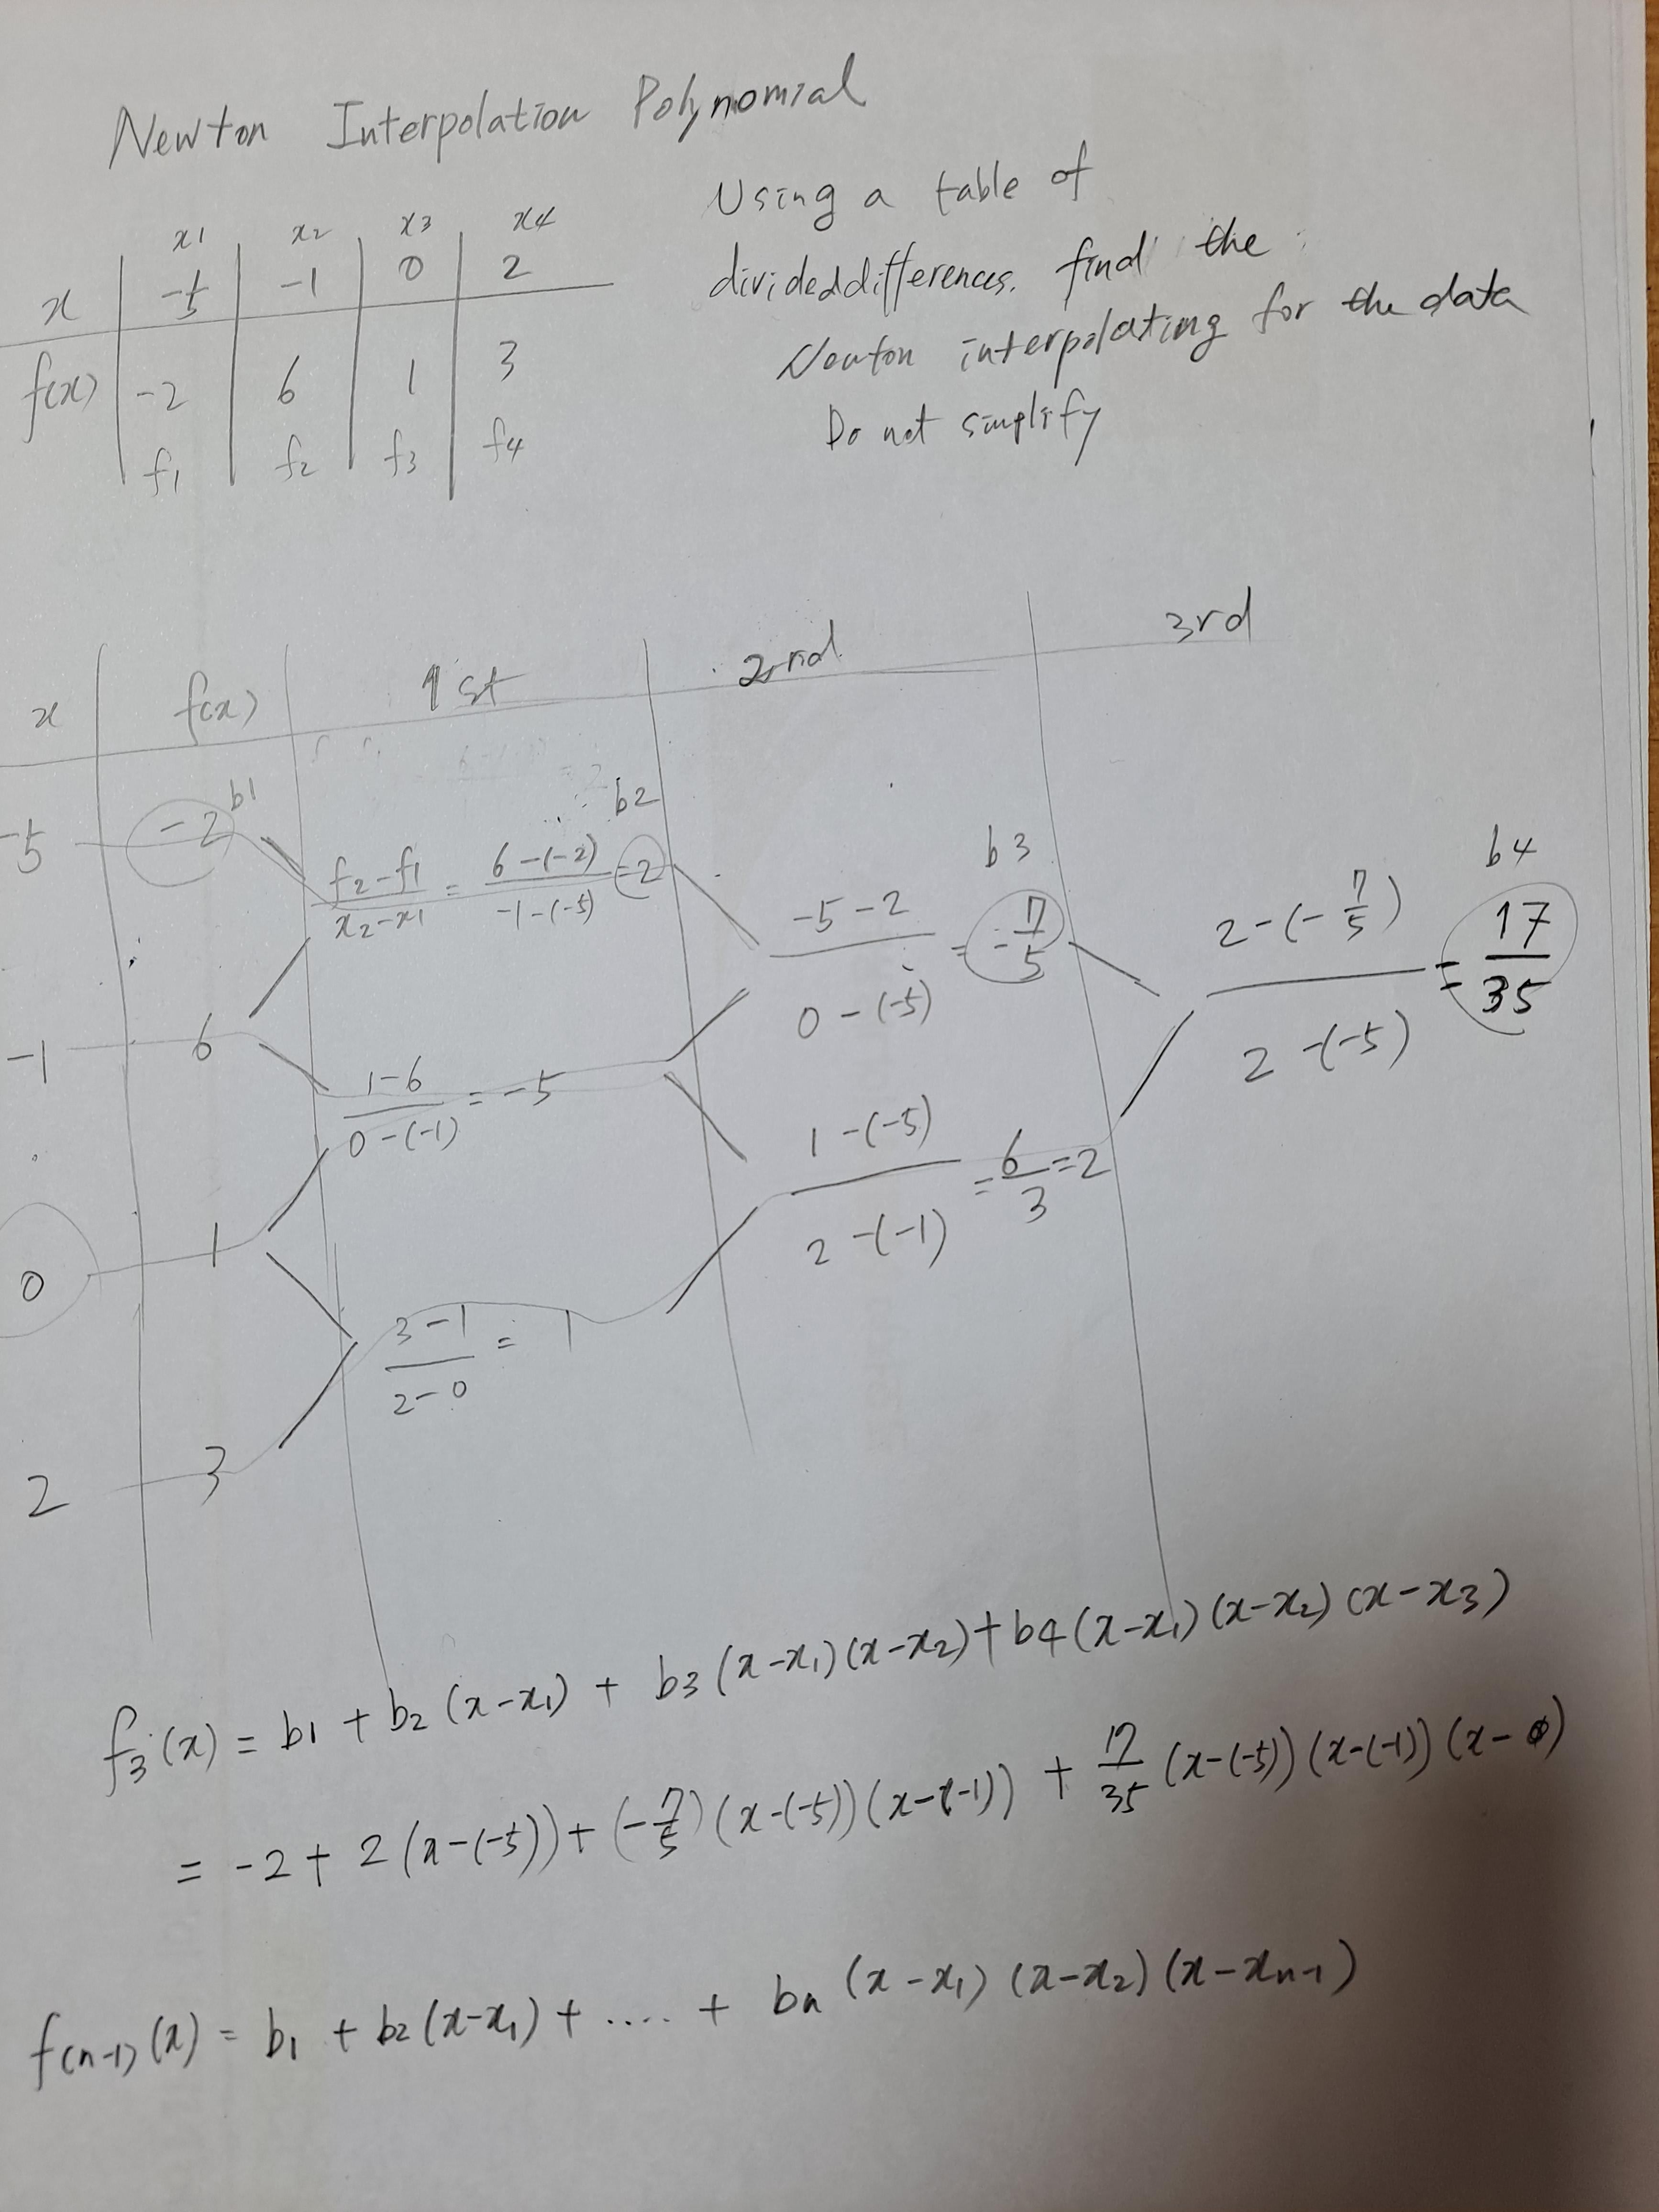 Newton Interpolation Polynomial
Using a table of
divideddifferences. find the
Newton interpolating for the data
Do not simplify
x1 x2 x3 x4
x -5 -1 0 2
f(x) -2 6 1 3
f1 f2 f3 f4
x f(x) 1st 2nd 3rd
b1 b2 b3 b4
-5 -2 (f2-f1)/(x2-x1) = (6-(-2))/(-1-(-5)) = 2
(-5-2)/(0-(-5)) = -7/5
(2-(-7/5))/(2-(-5)) = 17/35
-1 6
(1-6)/(0-(-1)) = -5
(1-(-5))/(2-(-1)) = 6/3 = 2
0 1
(3-1)/(2-0) = 1
2 3
f3(x) = b1 + b2(x-x1) + b3(x-x1)(x-x2) + b4(x-x1)(x-x2)(x-x3)
= -2 + 2(x-(-5)) + (-7/5)(x-(-5))(x-(-1)) + 17/35(x-(-5))(x-(-1))(x-0)
f(n-1)(x) = b1 + b2(x-x1) + .... + bn(x-x1)(x-x2)(x-xn-1)